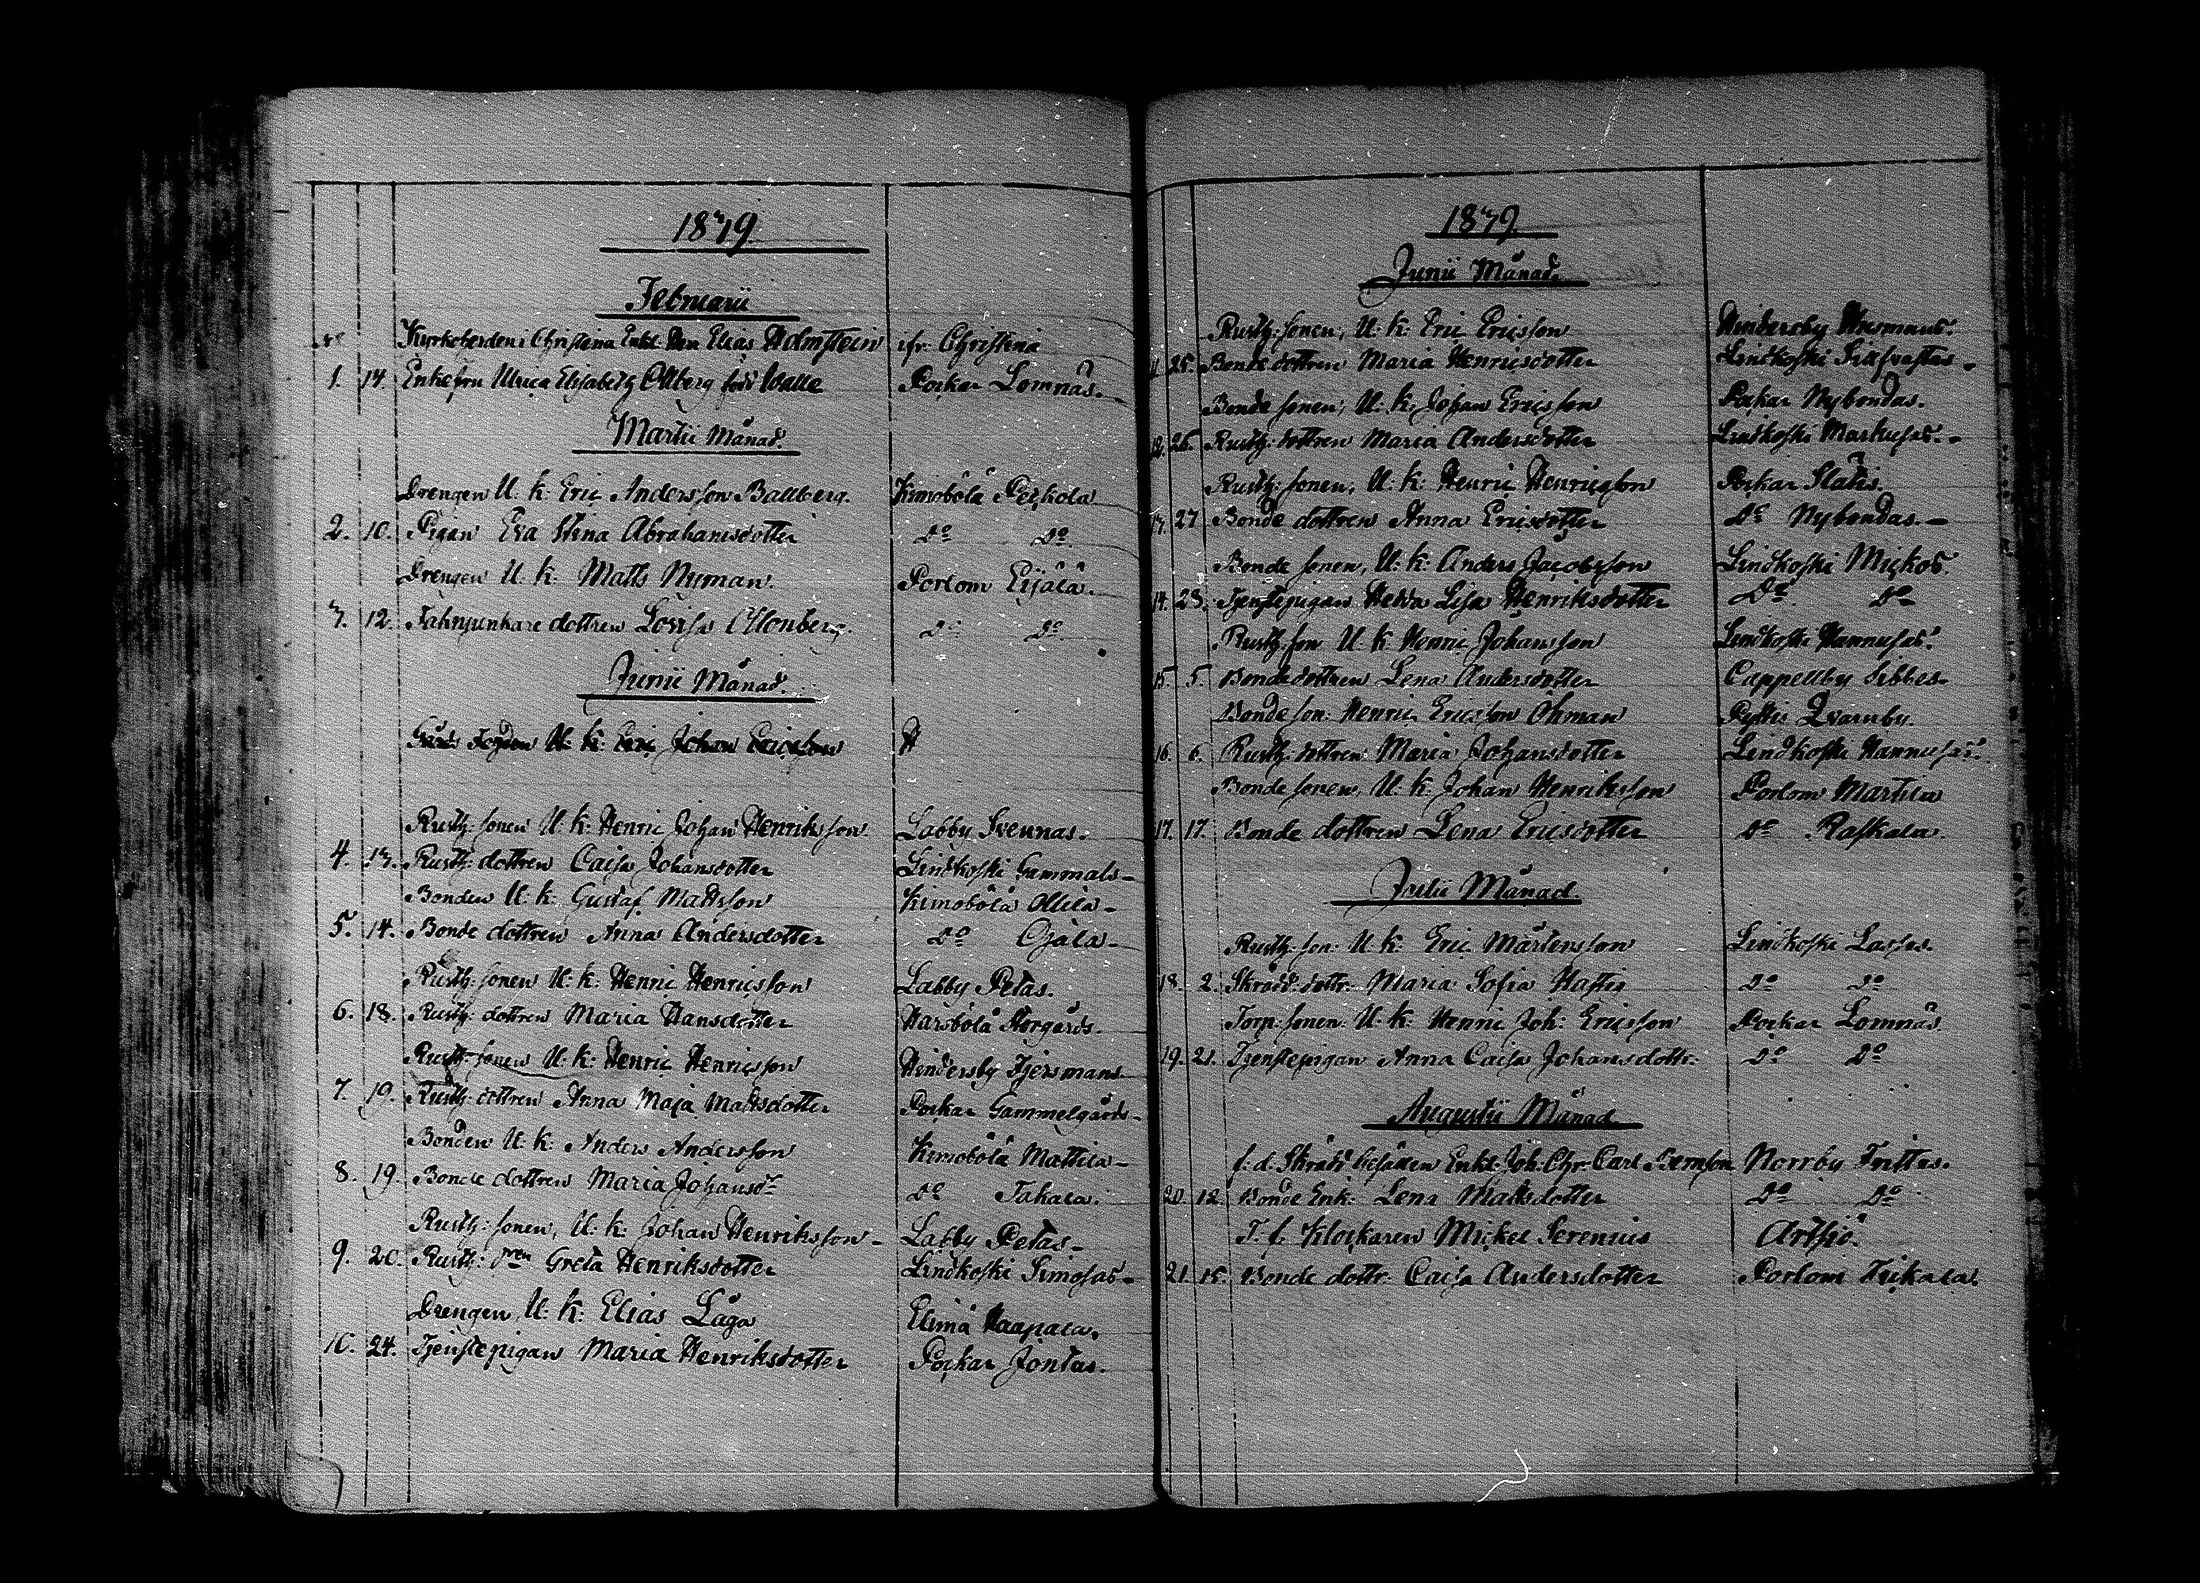 1849.
Februarii
N:o Kyrkoherden i Christina Enkl. Herr Elias Holmstein ifr. Christina
1. 14. Enkefru Ulrica Elisabeth Ollberg född Walle Porkar Lomnäs.
Martii Månad.
Drengen U: k: Eric Andersson Ballberg. Kimoböla Perkola
2. 10. Pigan Eva Stina Abrahamsdotter Do Do
Drengen U: k: Matts Nyman. Porlom Eijälä.
3. 12. Fahnjunkare dottren Lovisa Do Do
Junii Månad.
Gårds fogden U: k: Eric Johan Ericsson H
Rusth: sonen U: k: Henric Johan Henriksson Labby Svennas.
4. 13. Rusth: dottren Caisa Johansdotter Lindkoski Gammals
Bonden U: k: Gustaf Mattsson Kimoböla Ollila
5. 14. Bonde dottren Anna Andersdotter Do Ojala
Rusth: sonen U: k: Henric Henricsson Labby Petas.
6. 18. Rusth: dottren Maria Hansdotter Harsböla Storgårds.
Rusth: sonen U: k: Henric Henricsson Hindersby Tjersmans
7. 19. Rusth: dottren Anna Maja Mattsdotter Porkar Gammelgårds
Bonden U: k: Anders Andersson Kimoböla Mattila
8. 19. Bonde dottren Maria Johansdr Do Takala.
Rusth: sonen, U: k: Johan Henriksson Labby Petas
9. 20. Rusth: dren Greta Henriksdotter Lindkoski Simosas
Drengen, U: k: Elias Låga Elimä Haapala.
10. 24. Tjenstepigan Maria Henriksdotter Porkar Jontas.
1849.
Junii Månad.
Rusth: sonen, U: k: Eric Ericsson Hindersby
11. 25. Bonde dottren Maria Henricsdotter Lindkoski Sillfvastas
Bonde sonen, U: k: Johan Ericsson Porkar Nybondas.
12. 26. Rusth: dottren Maria Andersdotter Lindkoski Markusas.
Rusth: sonen, U: k: Henric Henricsson Porkar Slätis.
13. 27 Bonde dottren Anna Ericsdotter Do Nybondas.
Bonde sonen, U: k: Anders Jacobsson Lindkoski Mickos
14. 28. Tjenstepigan Hedda Lisa Henriksdotter Do Do
Rusth: son U: k: Henric Johansson Lindkoski Hannusas.
15. 5. Bonde dottren Lena Andersdotter Cappellby Sibbes
Bonde son: Henric Ericsson Öhman Pyttis Qvarnby
16. 6. Rusth: dottren: Maria Johansdotter Lindkoski Hannusas.
Bonde sonen, U: k: Johan Henriksson Porlom Martila
17. 17. Bonde dottren Lena Ericsdotter Do Raskala.
Julii Månad
Rusth: son: U: k: Eric Mårtensson Lindkoski Lassas.
18. 2. Skrädd: dottr: Maria Sofia Hastig Do Do
Torp: sonen U: k: Henric Joh: Ericsson Porkar Lomnäs
19. 21. Tjenstepigan Anna Caisa Johansdottr: Do Do
Augustii Månad
f. d. Skrädd Gesällen Enkl: Joh: Chr: Carl Bernson Norrby Frittas.
20. 12. Bonde Enk: Lena Mattsdotter Do Do
T. f. Klockaren Mickel Serenius Artsjö.
21. 15. Bonde dottr: Caisa Andersdotter Porlom Tukala.